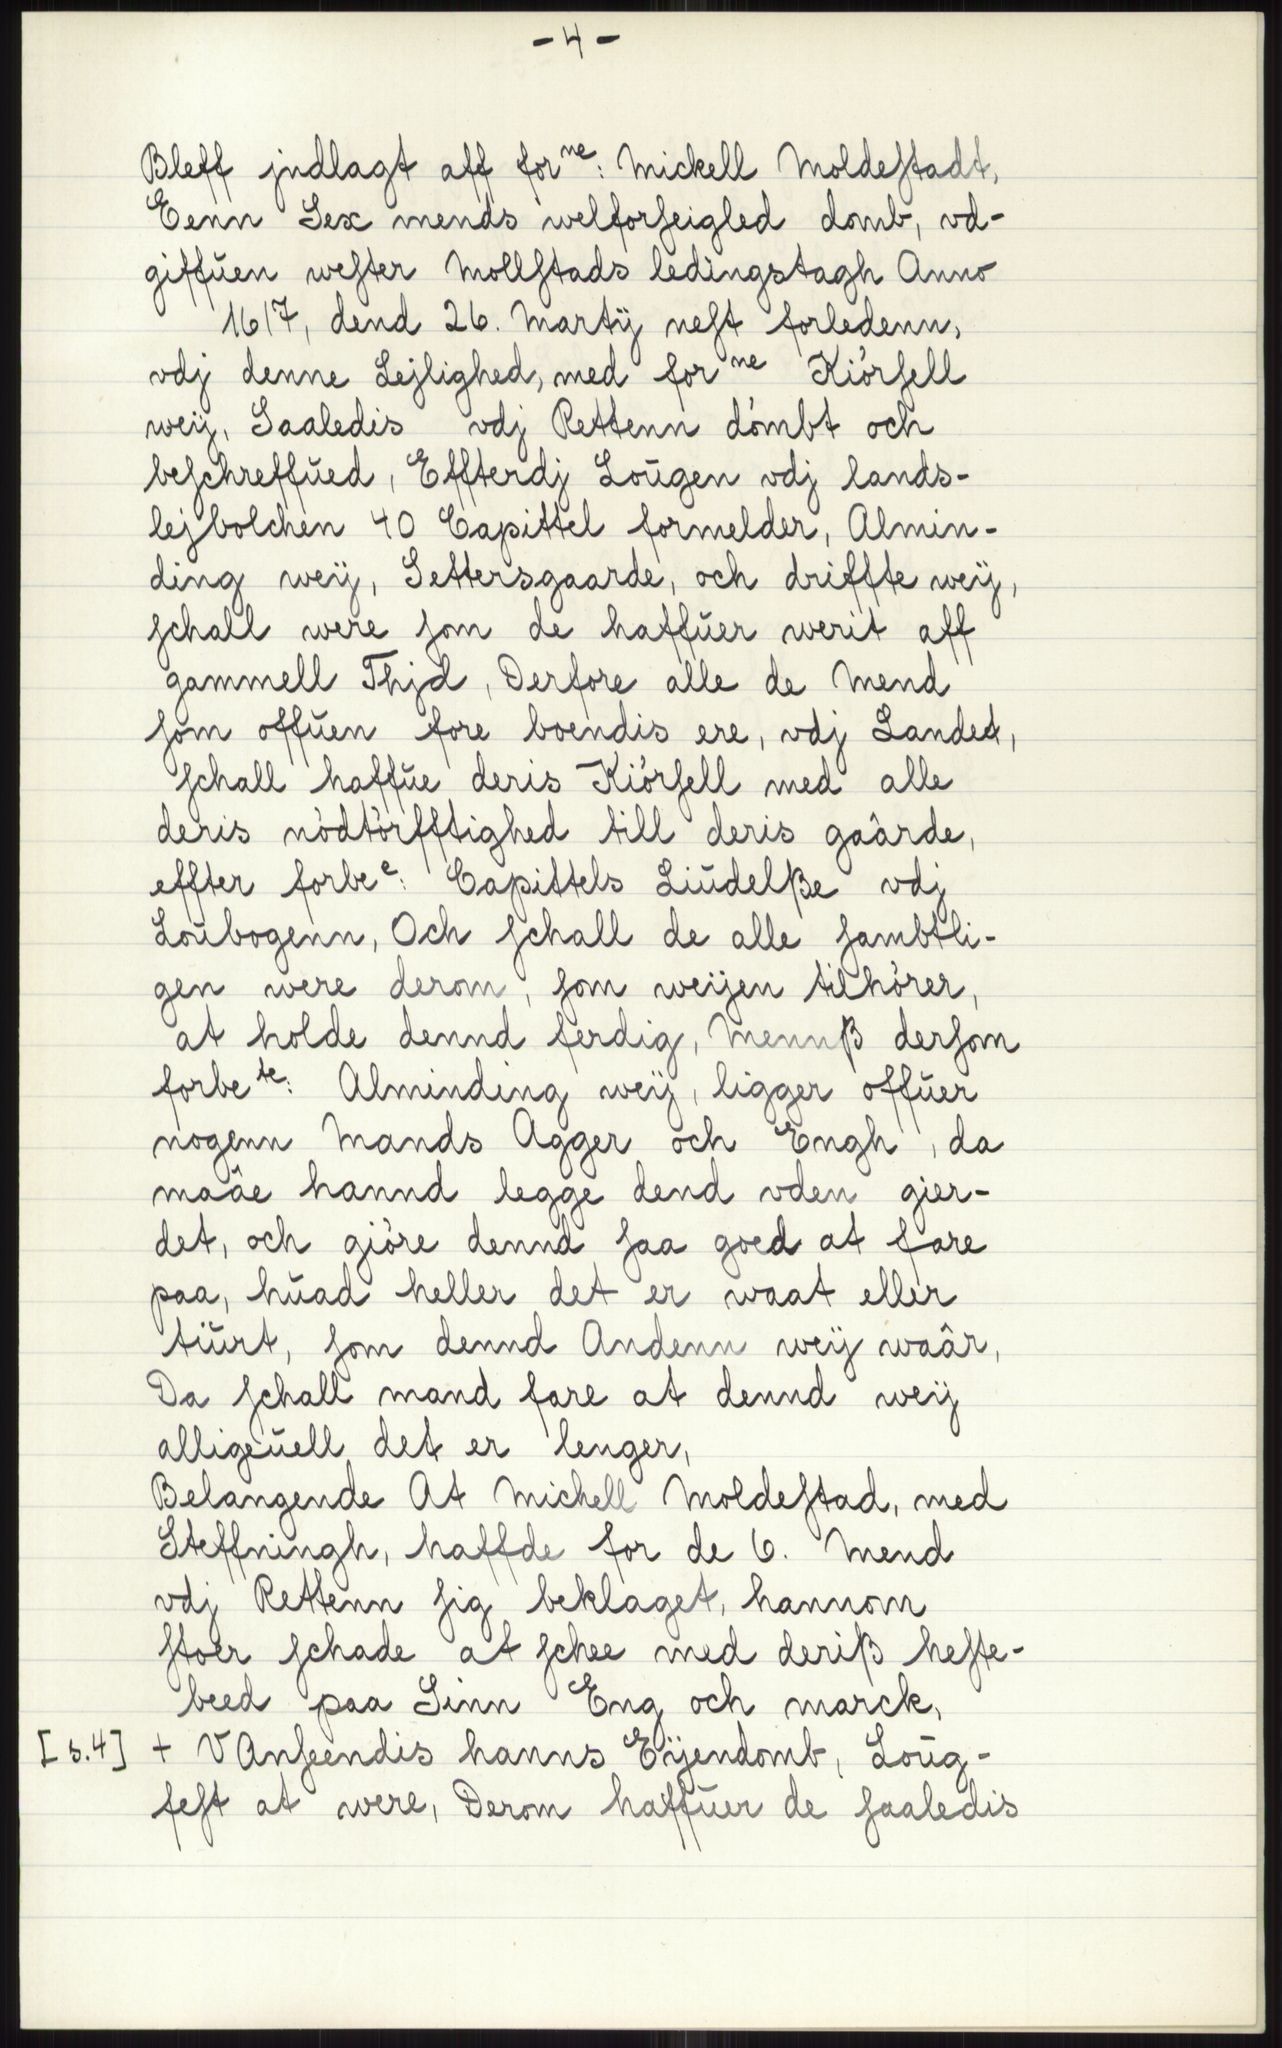 - 4 -
Bleff jndlagt aff for ne: Mickell Moldestadt,
Eenn Sex mends welforseigled domb, vd-
giffŭen wester Mollstads ledingstagh Anno
1617, dend 26. Martÿ nest forledenn,
vdj denne Lejlighed, med for ne Kiórsell
weÿ, Saaledis vdj Rettenn dómbt och
beschreffŭed, Effterdj Loŭgen vdj lands-
lejbolchen 40 Capittel formelder, Almin-
ding weÿ, Settersgaarde, och driffte weÿ,
schall were som de haffŭer werit aff
gammell Thjd, Derfore alle de Mend
som offŭen fore boendis ere, vdj Landet,
schall haffŭe deris Kiórsell med alle
deris nódtórfftighed till deris gaârde,
effter forbe e: Capittels Liŭdelße vdj
Loŭbogenn, Och schall de alle sambtli-
gen were derom, som weijen tilhórer,
at holde dennd ferdig, Mennß dersom
forbe te: Alminding weÿ, ligger offŭer
nogenn Mands Agger och Engh, da
maâe hannd legge dend vden gier-
det, och gióre dennd saa goed at fare
paa, hŭad heller det er waat eller
tiŭrt, som dennd Andenn weÿ waâr,
Da schall mand fare at dennd weÿ
alligeŭell det er lenger,
Belangende At Michell Moldestad, med
Steffningh, haffde for de 6. Mend
vdj Rettenn sig beklaget, hannom
stoer schade at schee med deriß heste-
beed paa Sinn Eng och marck,
[s.4] + V Anseendis hanns Eÿendomb, Loŭg-
fest at were, Derom haffŭer de saaledis